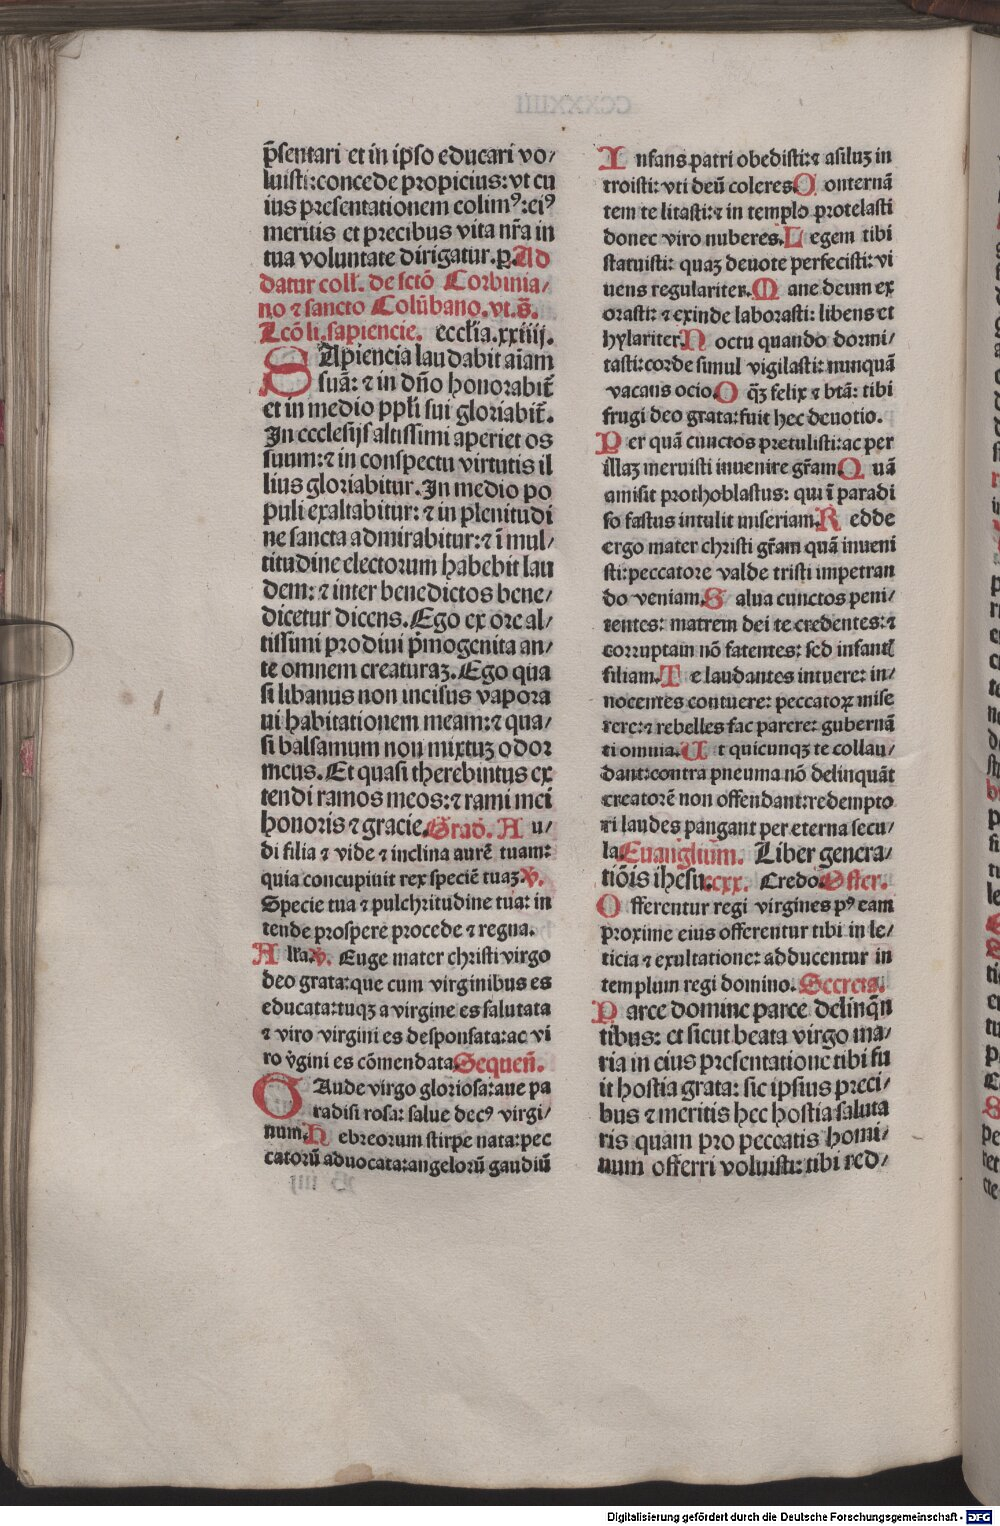 p̄sentari et in ipso educari vo/
luisti:concede propicius: vt cu
ius presentationem colim⁹:ei⁹
meritis et precibus vita nr̄a in
tua voluntate dirigatur.ꝑ. Ad
datur coll. de sctō Corbinia/
no ⁊ sancto Colūbano. vt. s̄.
Lcō li. sapiencie. eccl'ia. xxiiij.
SApiencia laudabit aīam
suā: ⁊ in dn̄o honorabit̄
et in medio pp̄li sui gloriabit̄.
In ecclesijs altissimi aperiet os
suum:⁊ in conspectu virtutis il
lius gloriabitur. In medio po
puli exaltabitur: ⁊ in plenitudi
ne sancta admirabitur:⁊ ī mul/
titudine electorum habebit lau
dem: ⁊ inter benedictos bene/
dicetur dicens. Ego ex ore al/
tissimi prodiui p̄mogenita an/
te omnem creaturaꝫ. Ego qua
si libanus non incisus vapora
ui habitationem meam:⁊ qua/
si balsamum non mixtuꝫ odor
meus. Et quasi therebintus ex
tendi ramos meos:⁊ rami mei
honoris ⁊ gracie. Grad. A u/
di filia ⁊ vide ⁊ inclina aurē tuam:
quia concupiuit rex speciē tuaꝫ. v̄.
Specie tua ⁊ pulchritudine tua: in
tende prospere procede ⁊ regna.
All'a. v̄. Euge mater christi virgo
deo grata: que cum virginibus es
educata:tuqꝫ a virgine es salutata
⁊ viro virgini es desponsata:ac vi
ro v̄gini es cōmendata. Sequen̄.
GAude virgo gloriosa:aue pa
radisi rosa: salue dec⁹ virgi/
num. H ebreorum stirpe nata:pec
catorū aduocata:angelorū gaudiū
I nfans patri obedisti:⁊ asiluꝫ in
troisti: vti deū coleres. C onternā
tem te litasti:⁊ in templo protelasti
donec viro nuberes. L egem tibi
statuisti: quaꝫ deuote perfecisti: vi
uens regulariter. M ane deum ex
orasti: ⁊ exinde laborasti: libens et
hylariter. N octu quando dormi/
tasti:corde simul vigilasti: nunquā
vacans ocio. O qꝫ̄ felix ⁊ btā: tibi
frugi deo grata:fuit hec deuotio.
P er quā cunctos pretulisti:ac per
illaꝫ meruisti inuenire gr̄am. Q uā
amisit prothoblastus: qui ī paradi
so fastus intulit miseriam. R edde
ergo mater christi gr̄am quā inueni
sti:peccatore valde tristi impetran
do veniam. S alua cunctos peni/
tentes: matrem dei te credentes:⁊
corruptam nō fatentes: sed infantl'
filiam. T e laudantes intuere: in/
nocentes contuere: peccatoꝝ mise
rere:⁊ rebelles fac parere: gubernā
ti omnia. U t quicunqꝫ te collau/
dant:contra pneuma nō delinquāt
creatorē non offendant:redempto
ri laudes pangant per eterna secu/
la. Euangliūm. Liber genera/
tiōis ihesu. ccxx. Credo. Offer.
O fferentur regi virgines p⁹ eam
proxime eius offerentur tibi in le/
ticia ⁊ exultatione: adducentur in
templum regi domino. Secreta.
P arce domine parce delinqn̄
tibus: et sicut beata virgo ma/
ria in eius presentatione tibi fu
it hostia grata: sic ipsius preci/
bus ⁊ meritis hec hostia saluta
ris quam pro peccatis homi/
num offerri voluisti: tibi red/
Digitalisierung gefördert durch die Deutsche Forschungsgemeinschaft - DFG